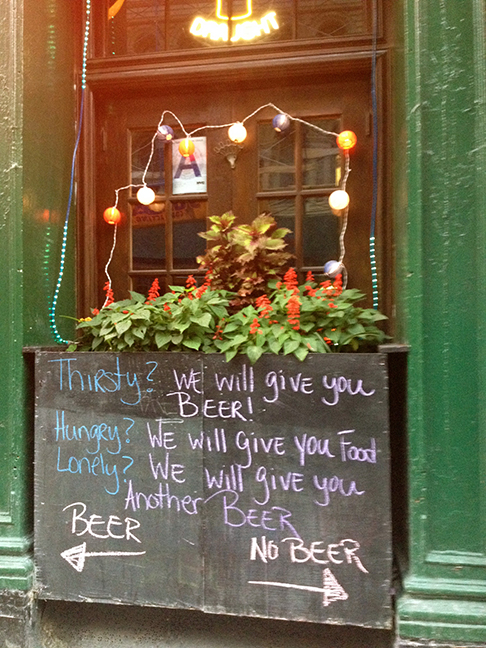 BEER
DRAUGHT
A
Thirsty? WE will give you
BEER!
Hungry? WE will GIVE YOU Food
Lonely? WE will give you
Another BEER
BEER
NO BEER